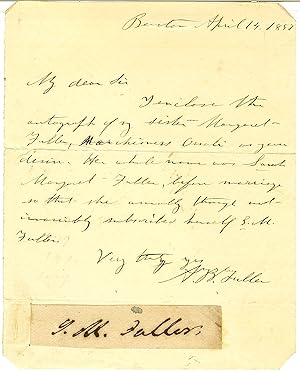 Boston April 14. 1857
My dear Sir
I enclose the
autograph of my sister Margaret
Fuller, Marchioness Ossoli as you
desire. Her whole name was Sarah
Margaret Fuller, before marriage
so that she usually though not
invariably subscribed herself S. M.
Fuller.
Very truly yrs
A. B. Fuller
S. M. Fuller.